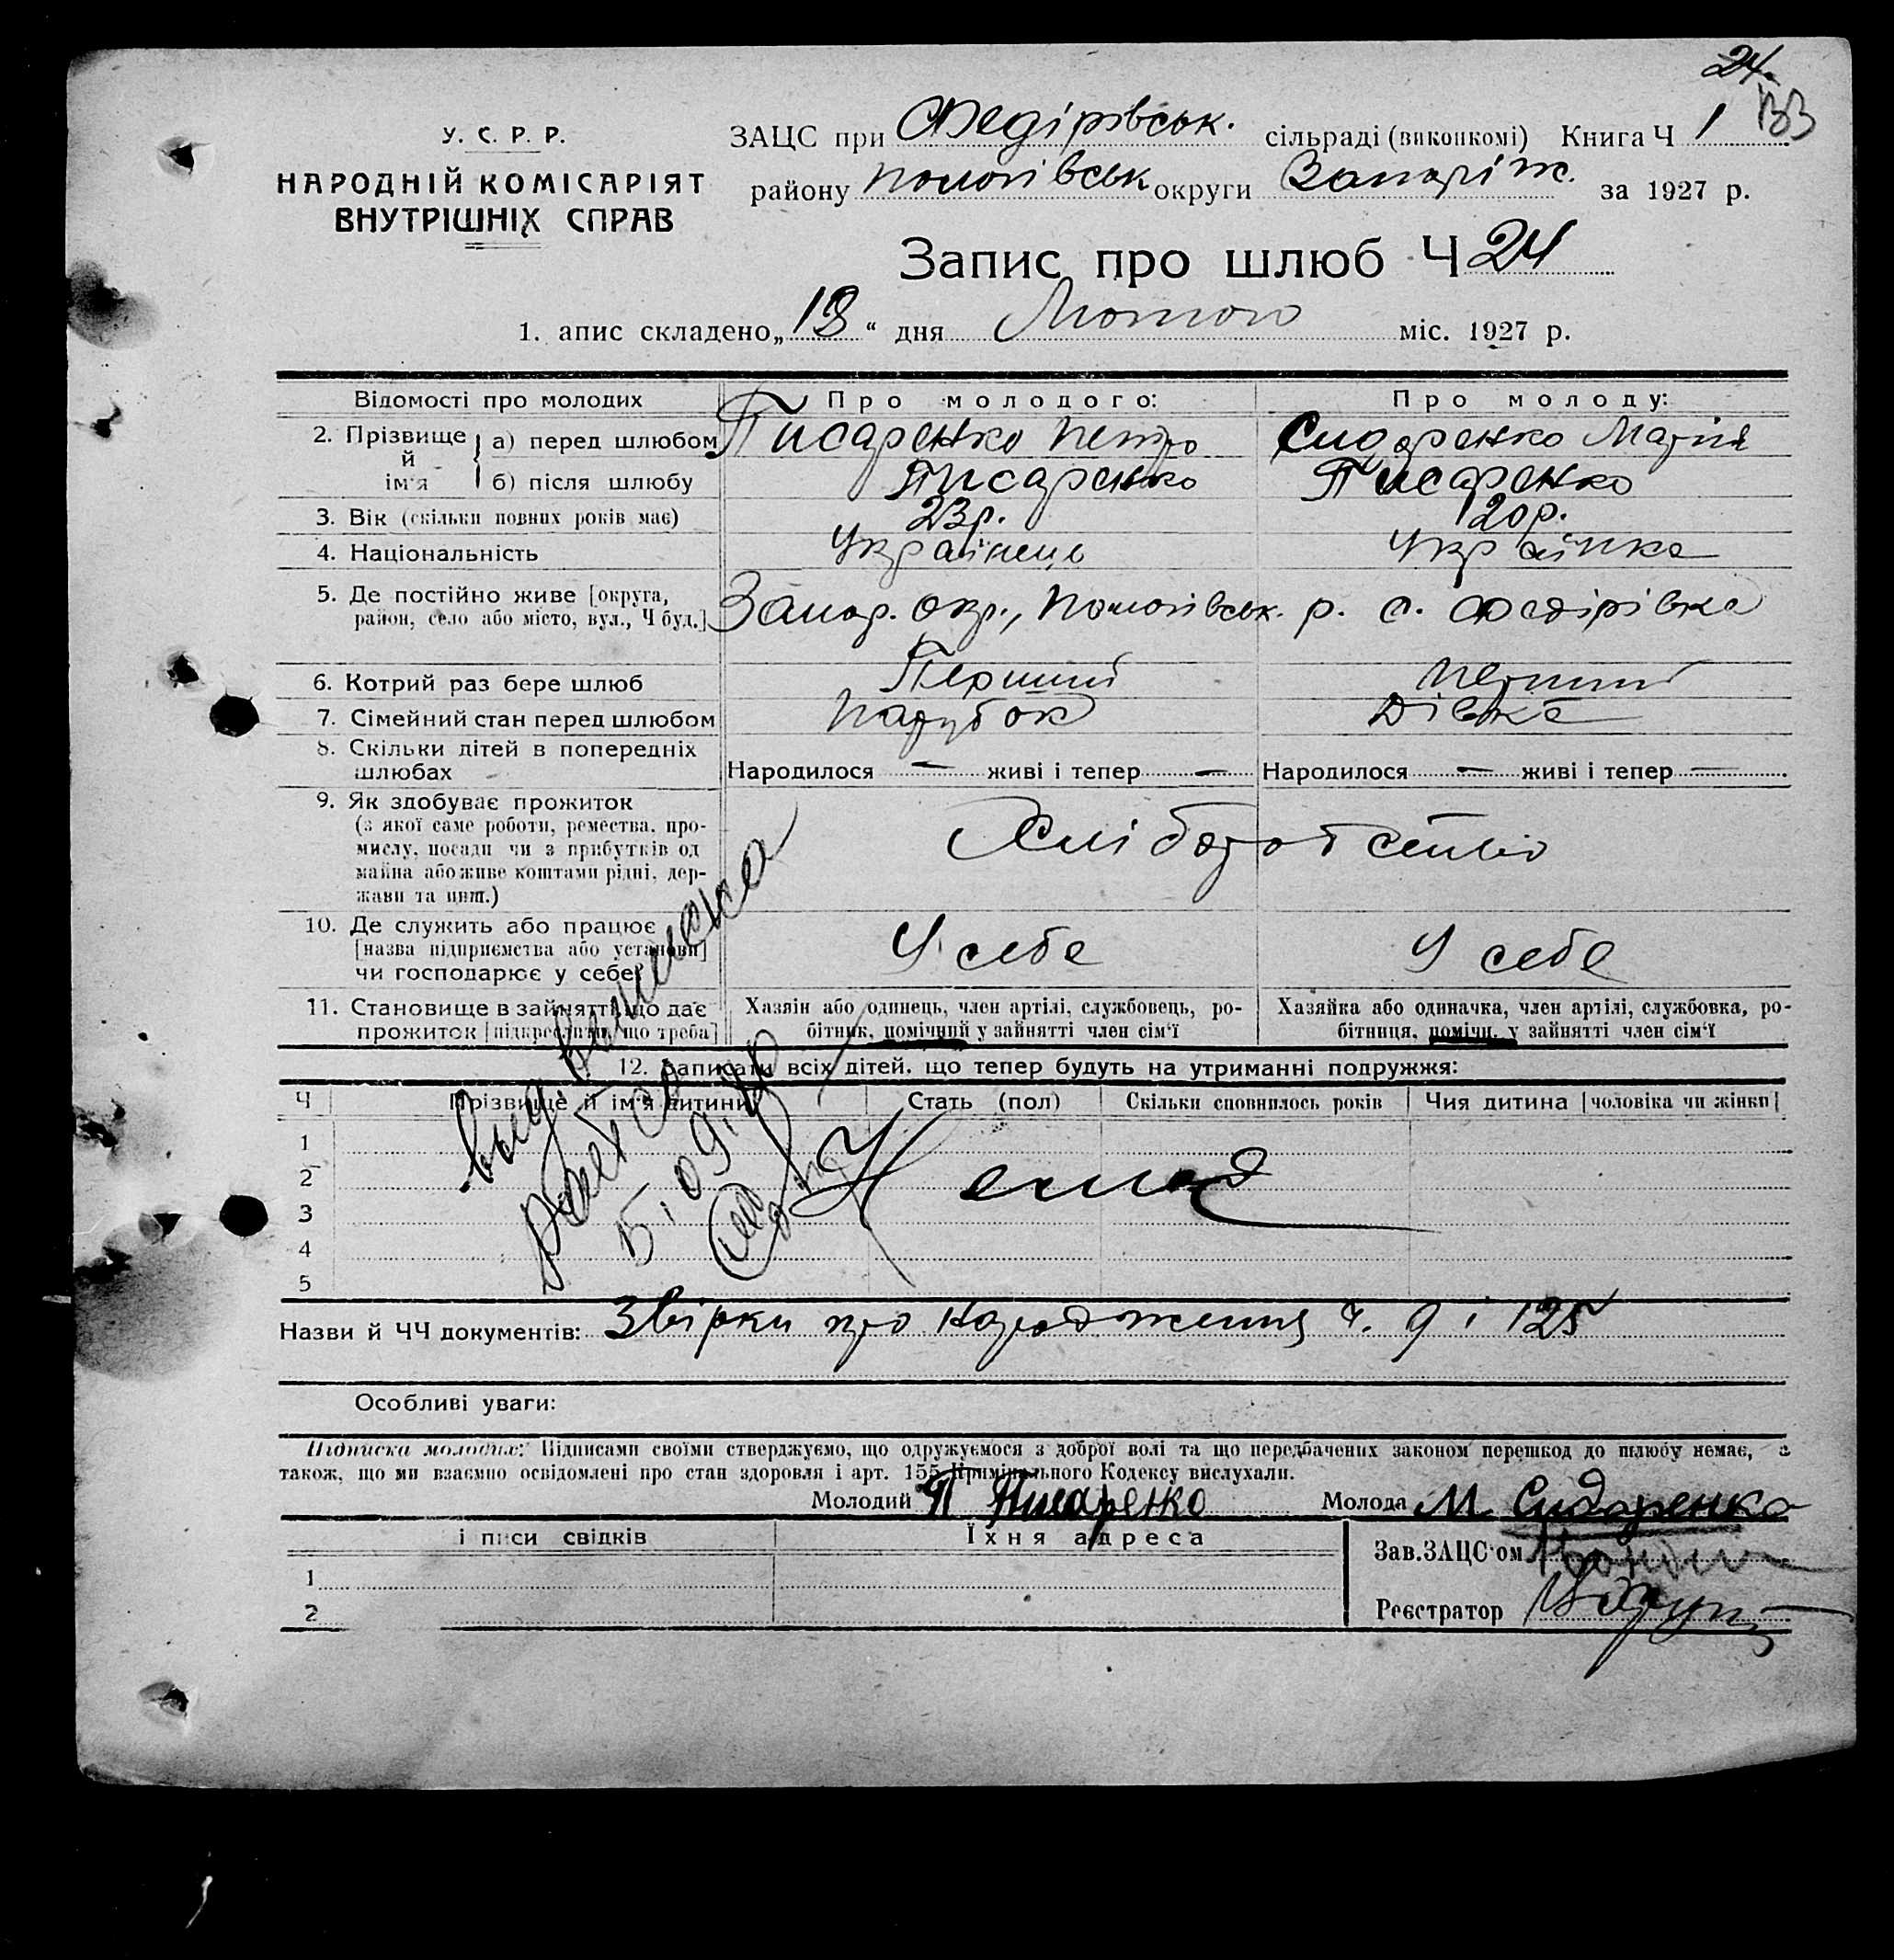 24.
133
У. С. Р. Р.
НАРОДНІЙ КОМІСАРІЯТ
ВНУТРІШНІХ СПРАВ
ЗАЦС при Федірівськ. сільраді (виконкомі) Книга Ч 1
району Пологівськ округи Запоріж. за 1927 р.
Запис про шлюб Ч 24
1. апис складено „18“ дня Лютого міс. 1927 р.
Відомості про молодих Про молодого: Про молоду:
2. Прізвище й ім'я а) перед шлюбом Писаренко Петро Сидоренко Марія
б) після шлюбу Писаренко Писаренко
3. Вік (скільки повних років має) 23 р. 20 р.
4. Національність Українець Українка
5. Де постійно живе [округа,
район, село або місто, вул., Ч буд.] Запор. окр., Пологівськ. р. с. Федірівка
6. Котрий раз бере шлюб Перший Перший
7. Сімейний стан перед шлюбом Парубок Дівка
8. Скільки дітей в попередніх
шлюбах Народилося — живі і тепер — Народилося — живі і тепер —
9. Як здобуває прожиток
(з якої саме роботи, ремества, про-
мислу, посади чи з прибутків од
майна або живе коштами рідні, дер-
жави та инш.) Хліборобство
10. Де служить або працює
[назва підприємства або установи]
чи господарює у себе? У себе У себе
11. Становище в зайнятті, що дає
прожиток [підкреслити, що треба]
Хазяін або одинець, член артілі, службовець, ро-
бітник, помічний у зайнятті член сім'ї
Хазяйка або одиначка, член артілі, службовка, ро-
бітниця, помічн. у зайнятті член сім'ї
12. Записати всіх дітей, що тепер будуть на утриманні подружжя:
Ч Прізвище й ім'я дитини Стать (пол) Скільки сповнилось років Чия дитина [чоловіка чи жінки]
1
2 Немає
3
4
5
Назви й ЧЧ документів: Звірки про народження ч. 9 і 125
Особливі уваги:
Підписка молодих: Підписами своїми стверджуємо, що одружуємося з доброї волі та що передбачених законом перешкод до шлюбу немає, а
також, що ми взаємно освідомлені про стан здоровля і арт. 155 Кримінального Кодексу вислухали.
Молодий П Писаренко Молода М Сидоренко
і писи свідків Їхня адреса
Зав. ЗАЦС'ом
1
2
Реєстратор